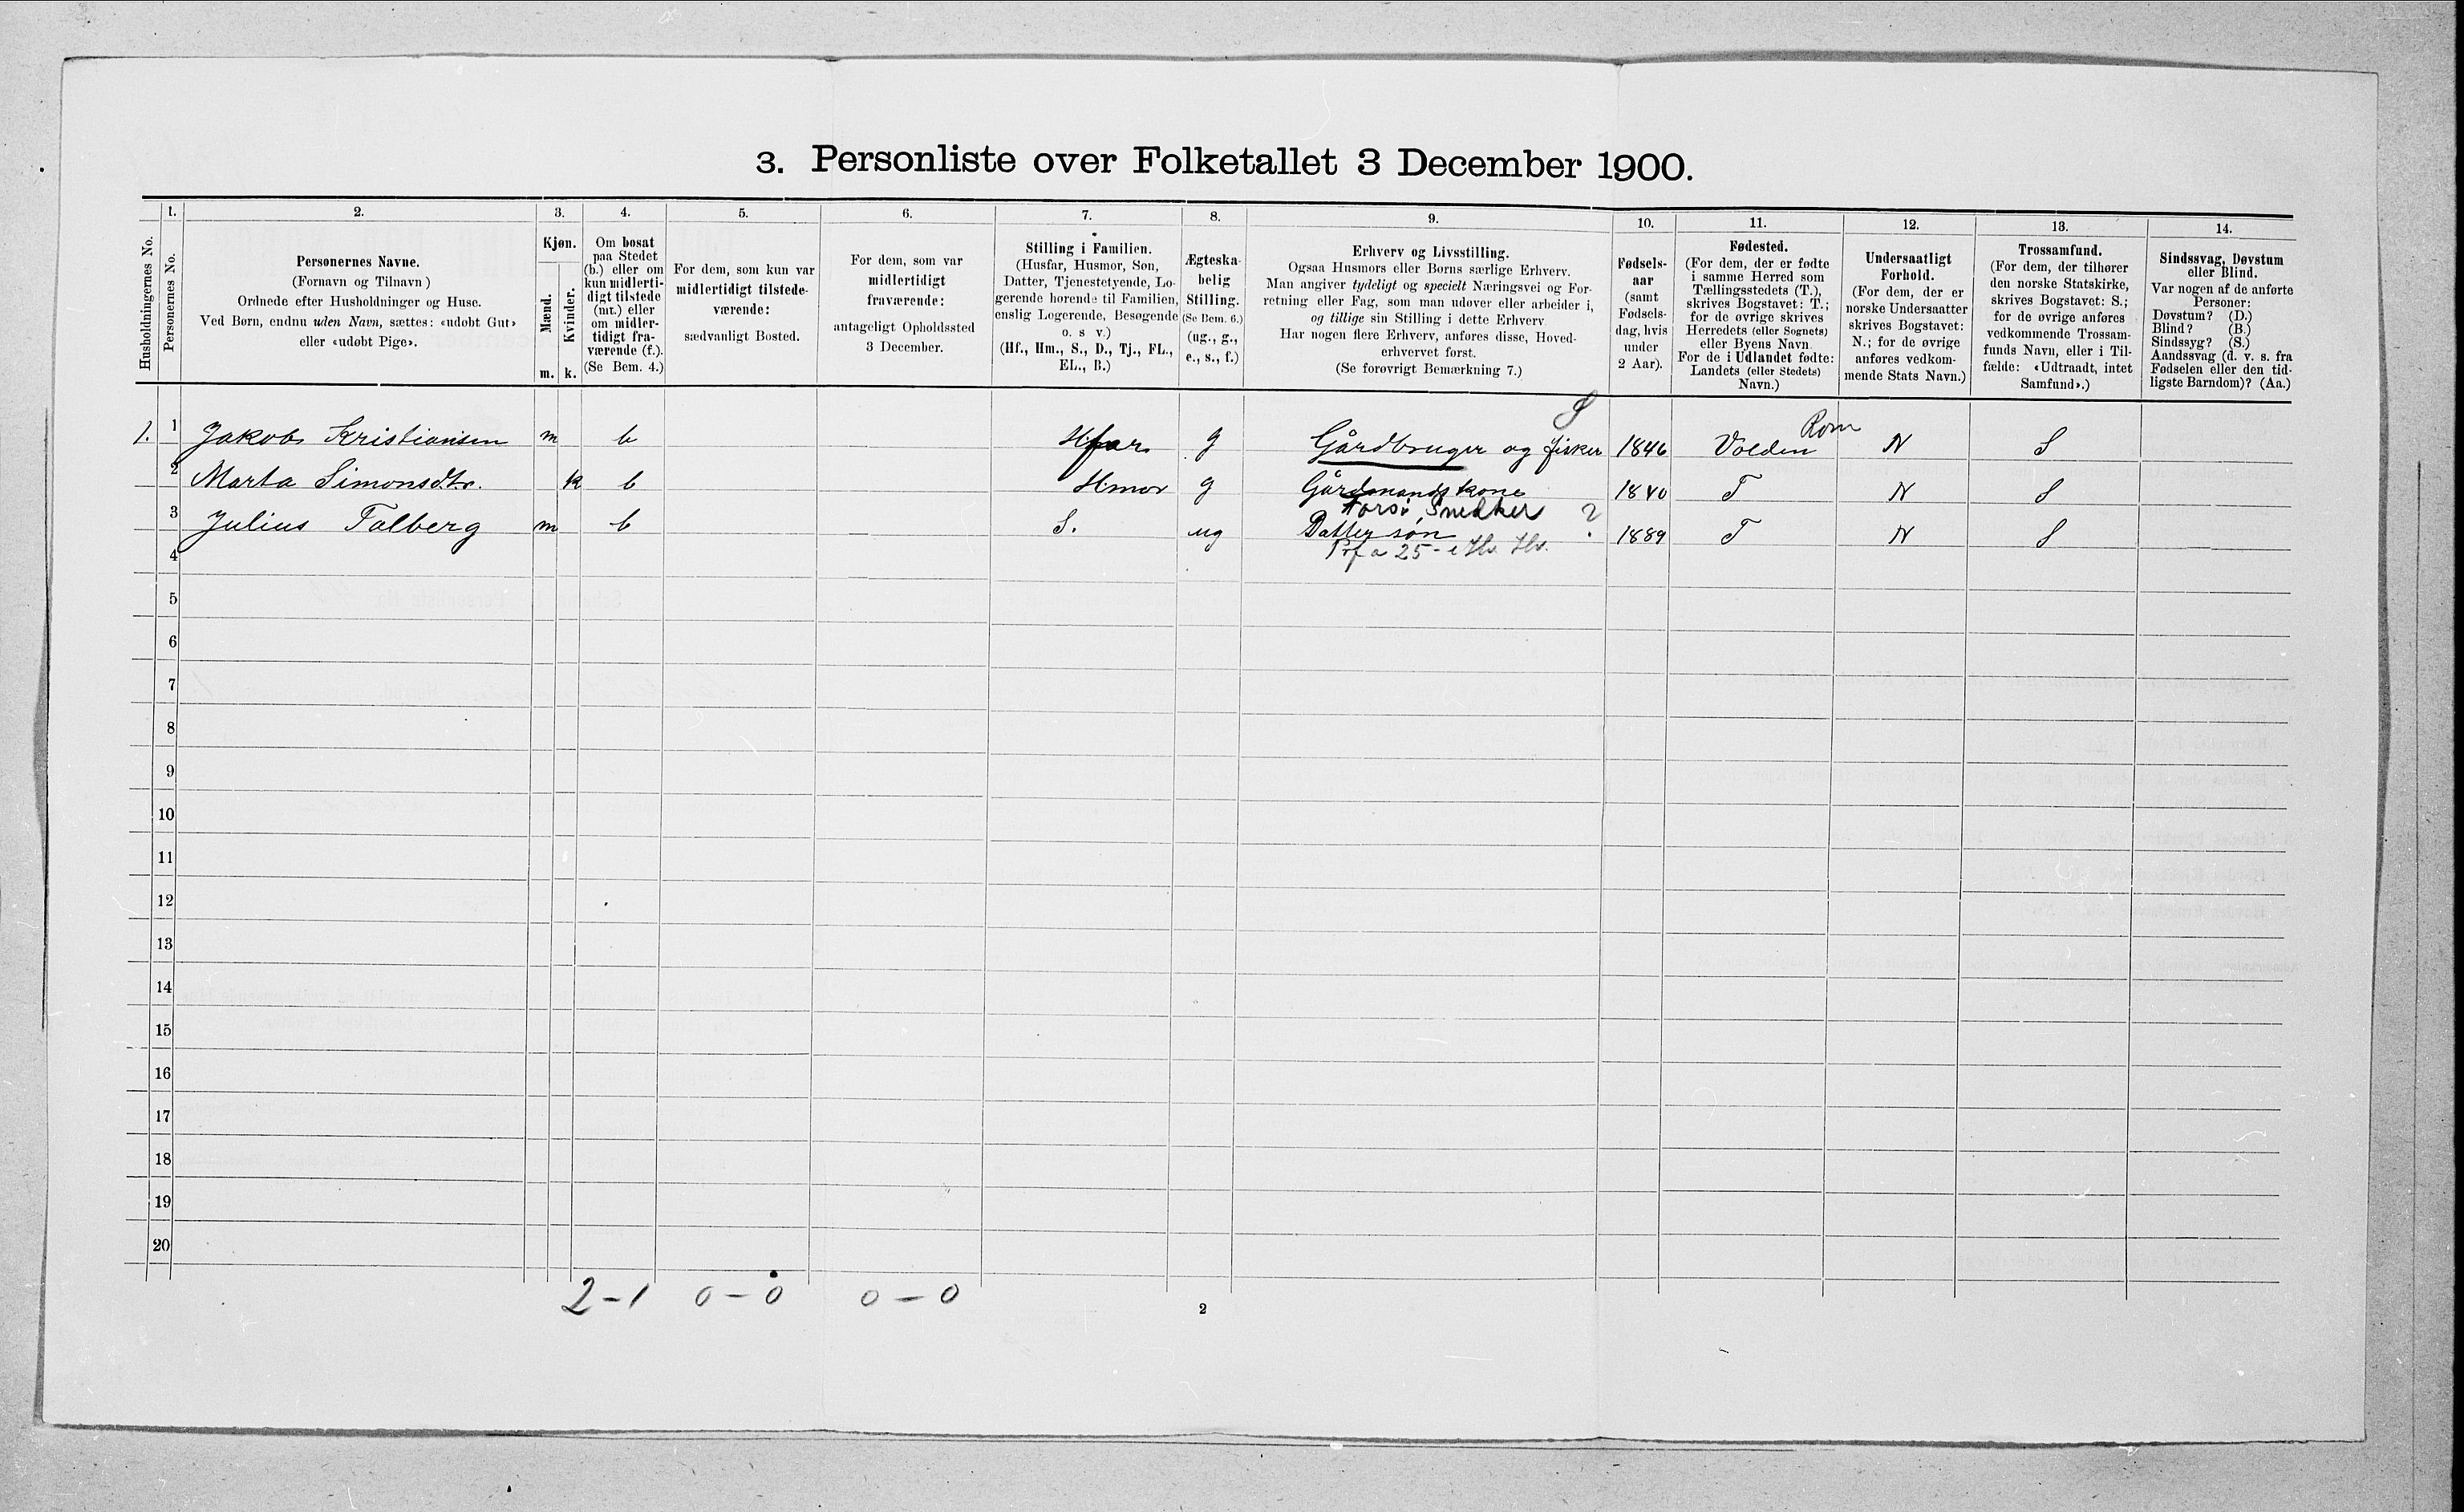 3. Personliste over Folketallet 3 December 1900.
1. 2. 3. 4. 5. 6. 7. 8. 9. 10. 11. 12. 13. 14.
Husholdningernes No.
Personernes No.
Personernes Navne.
(Fornavn og Tilnavn)
Ordnede efter Husholdninger og Huse.
Ved Børn, endnu uden Navn, sættes: «udøbt Gut»
eller «udøbt Pige».
Kjøn.
Mænd.
Kvinder.
m. k.
Om bosat
paa Stedet
(b.) eller om
kun midlerti-
digt tilstede
(mt.) eller
om midler-
tidigt fra-
værende (f.).
(Se Bem. 4.)
For dem, som kun var
midlertidigt tilstede-
værende:
sædvanligt Bosted.
For dem, som var
midlertidigt
fraværende:
antageligt Opholdssted
3 December.
Stilling i Familien.
(Husfar, Husmor, Søn,
Datter, Tjenestetyende, Lo-
gerende hørende til Familien,
enslig Logerende, Besøgende
o. s v.)
(Hf., Hm., S., D., Tj., FL.,
EL., B.)
Ægteska-
belig
Stilling.
(Se Bem. 6.)
(ug., g.,
e., s., f.)
Erhverv og Livsstilling.
Ogsaa Husmors eller Børns særlige Erhverv.
Man angiver tydeligt og specielt Næringsvei og For-
retning eller Fag, som man udøver eller arbeider i,
og tillige sin Stilling i dette Erhverv
Har nogen flere Erhverv, anføres disse, Hoved-
erhvervet først.
(Se forøvrigt Bemærkning 7.)
Fødsels-
aar
(samt
Fødsels-
dag, hvis
under
2 Aar).
Fødested.
(For dem, der er fødte
i samme Herred som
Tællingsstedets (T.),
skrives Bogstavet: T.;
for de øvrige skrives
Herredets (eller Sognets)
eller Byens Navn.
For de i Udlandet fødte:
Landets (eller Stedets)
Navn.)
Undersaatligt
Forhold.
(For dem, der er
norske Undersaatter
skrives Bogstavet:
N.; for de øvrige
anføres vedkom-
mende Stats Navn.)
Trossamfund.
(For dem, der tilhører
den norske Statskirke,
skrives Bogstavet: S.;
for de øvrige anføres
vedkommende Trossam-
funds Navn, eller i Til-
fælde: «Udtraadt, intet
Samfund».)
Sindssvag, Døvstum
eller Blind.
Var nogen af de anførte
Personer:
Døvstum? (D.)
Blind? (B.)
Sindssyg? (S.)
Aandssvag (d. v. s. fra
Fødselen eller den tid-
ligste Barndom)? (Aa.)
Rom
1. 1 Jakob Kristiansen m b Hfar g Gårdbruger og fisker 1846 Volden N S
2 Marta Simonsdtr. k b Hmor g Gårdmandskone 1840 T N S
Fors. Snedker 2
3 Julius Talberg m b S. ug Dattersøn 1889 T N S
4
5
6
7
8
9
10
11
12
13
14
15
16
17
18
19
20
2-1 0-0 0-0
2